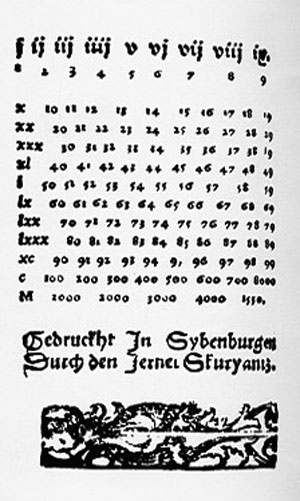 j ij iij iiij v vj vij viij ix.
1 2 3 4 5 6 7 8 9
x 10 11 12 13 14 15 16 17 18 19
xx 20 21 22 23 24 25 26 27 28 29
xxx 30 31 32 33 34 35 36 37 38 39
xl 40 41 42 43 44 45 46 47 48 49
l 50 51 52 53 54 55 56 57 58 59
lx 60 61 62 63 64 65 66 67 68 69
lxx 70 71 72 73 74 75 76 77 78 79
lxxx 80 81 82 83 84 85 86 87 88 89
xc 90 91 92 93 94 95 96 97 98 99
c 100 200 300 400 500 600 700 8000
M 1000 2000 3000 4000 1550.
Gedruckht In Sybenburgen
Durch den Jernei Skuryaniz.